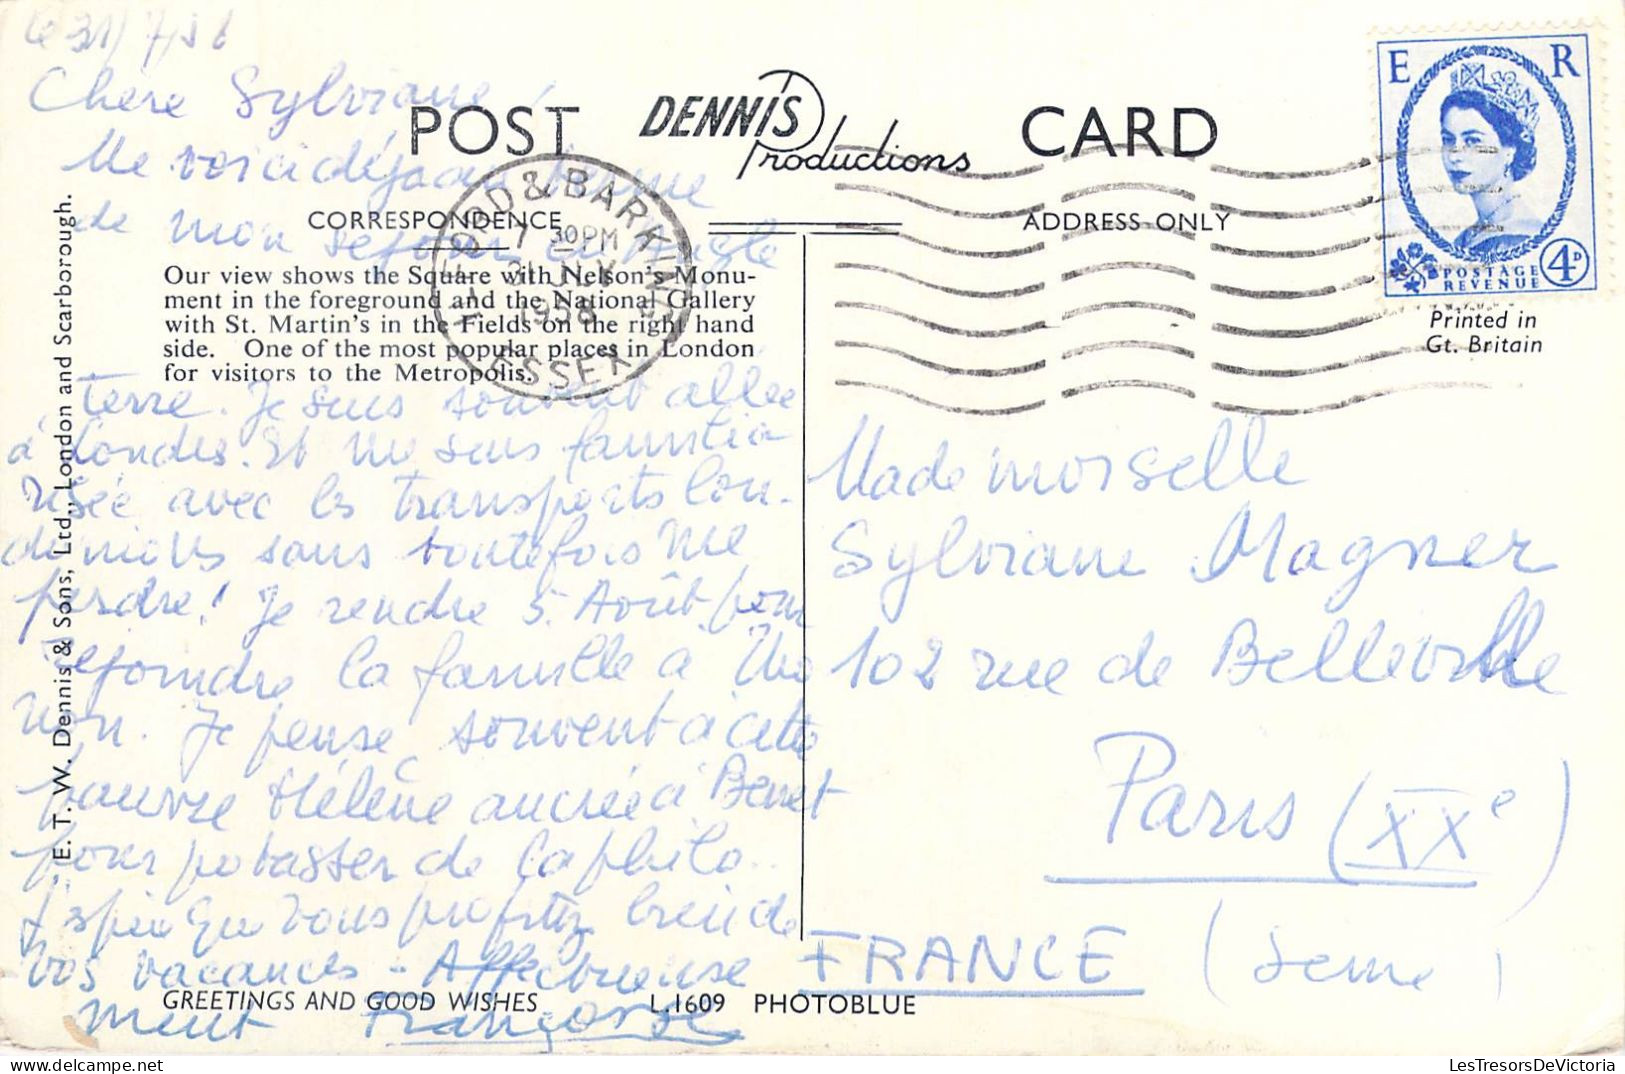 Chère Sylviane,
POST DENNIS Productions CARD
Me voici déjà au terme
de mon séjour en Angle
CORRESPONDENCE
ADDRESS ONLY
ILFORD & BARKING
7 30PM
31 JLY
1958
ESSEX
E R
POSTAGE
REVENUE
4D
Printed in
Gt. Britain
Our view shows the Square with Nelson's Monu-
ment in the foreground and the National Gallery
with St. Martin's in the Fields on the right hand
side. One of the most popular places in London
for visitors to the Metropolis.
terre. Je suis souvent allée
à Londres. Et me suis familia
risée avec les transports lon-
doniens sans toutefois me
perdre! Je rendre 5 Août pour
rejoindre la famille à
non. Je pense souvent à cette
pauvre Hélène ancrée à Benet
pour potasser de la philo..
J'espère que vous profitez bien de
vos vacances - Affectueuse
ment Françoise
Mademoiselle
Sylviane Magner
102 rue de Belleville
Paris (XXe)
FRANCE (Seine)
E. T. W. Dennis & Sons, Ltd., London and Scarborough.
GREETINGS AND GOOD WISHES L.1609 PHOTOBLUE
LesTresorsDeVictoria